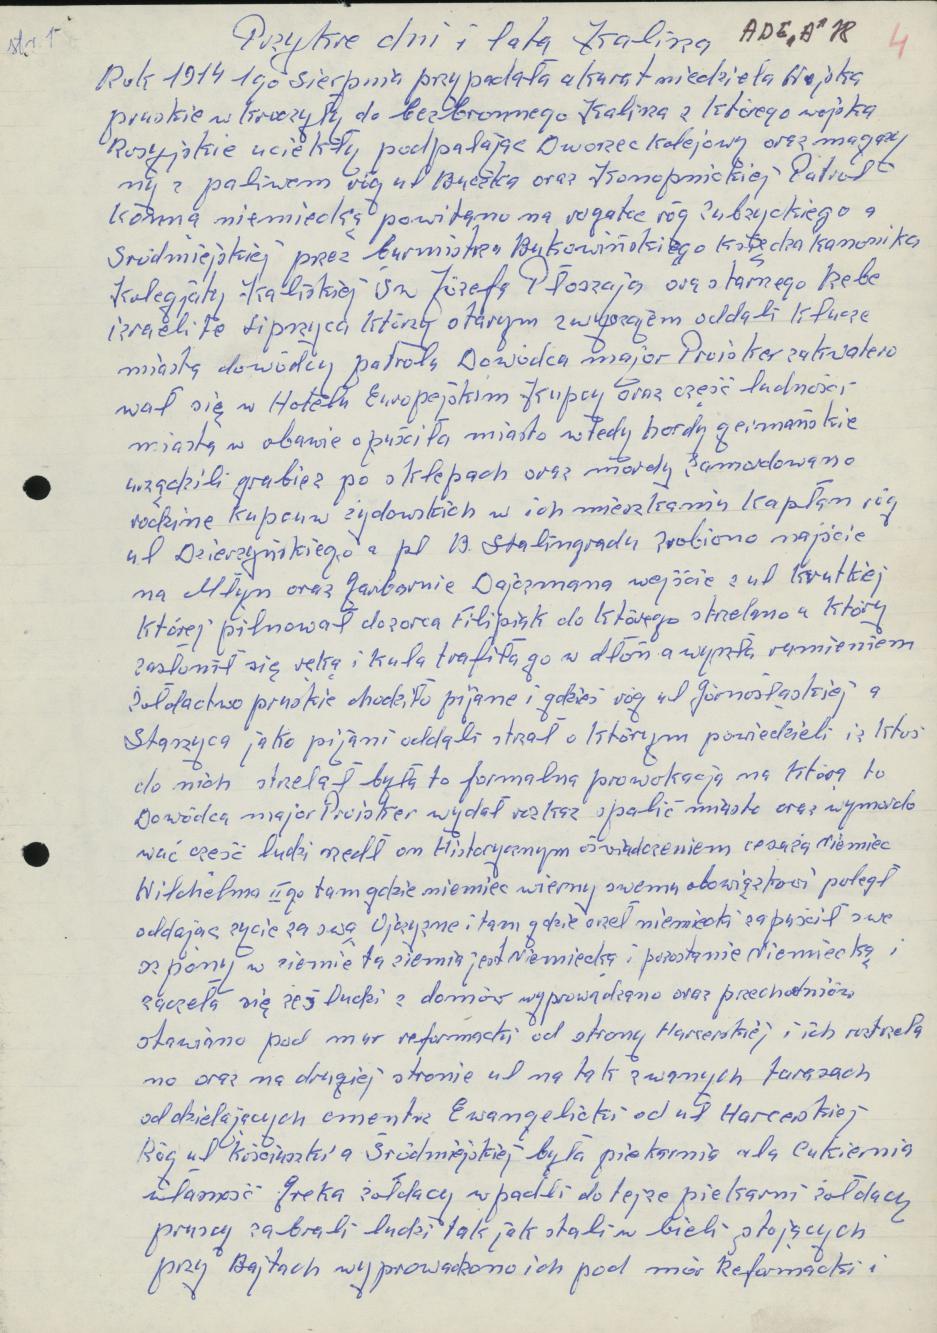 str. 1
Przykre dni i lata Kalisza ADE „A" 78 4
Rok 1914 1go Sierpnia przypadała akurat niedziela Wojska
pruskie wkroczyły do bezbronnego Kalisza z którego wojska
Rosyjskie uciekły podpalając Dworzec Kolejowy oraz magazy
ny z paliwem róg ul Buczka oraz Konopnickiej Patrol
konną niemiecką powitano na rogatce róg Zubrzyckiego a
Śródmiejskiej przez burmistrza Bukowińskiego księdza kanonika
Kolegjaty Kaliskiej Św Józefa Płoszaja oraz starszego Rebe
izraelitę Lipszyca którzy starym zwyczajem oddali klucze
miasta dowódcy patrolu Dowódca major Proisker zakwatero
wał się w Hotelu Europejskim Kupcy oraz część ludności
miasta w obawie opuściła miasto wtedy hordy germańskie
urządzili grabież po sklepach oraz mordy Zamordowano
rodzinę kupcuw żydowskich w ich mieszkaniu Kapłan róg
ul Dzierzyńskiego a pl B. Stalingradu Zrobiono najście
na Młyn oraz Garbarnie Dajczmana wejście z ul Krutkiej
której pilnował dozorca Filipiak do którego strzelano a który
zasłonił się ręką i kula trafiła go w dłoń a wyszła ramieniem
Żołdactwo pruskie chodziło pijane i gdzieś róg ul Górnośląskiej a
Staszyca jako pijani oddali strzał o którym powiedzieli iż ktoś
do nich strzelał była to formalna prowokacja na którą to
Dowódca major Proisker wydał rozkaz spalić miasto oraz wymordo
wać część ludzi szedł on Historycznym oświadczeniem cesaża Niemiec
Wilchelma II go tam gdzie niemiec wierny swemu obowiązkowi poległ
oddając życie za swą Ojczyznę i tam gdzie orzeł niemiecki zapuścił swe
szpony w ziemię ta ziemia jest Niemiecką i pozostanie Niemiecką i
zaczeła się żeś ludzi z domów wyprowadzano oraz przechodniów
stawiano pod mur reformacki od strony Harcerskiej i ich rozstrzela
no oraz na drugiej stronie ul na tak zwanych tarasach
oddzielających cmentż Ewangelicki od ul Harcerskiej
Róg ul Kościuszki a Śródmiejskiej była piekarnia ala Cukiernia
własność Greka żołdacy wpadli do tejże piekarni żołdacy
pruscy zabrali ludzi tak jak stali w bieli stojących
przy Bajtach wyprowadzono ich pod mór Reformacki i